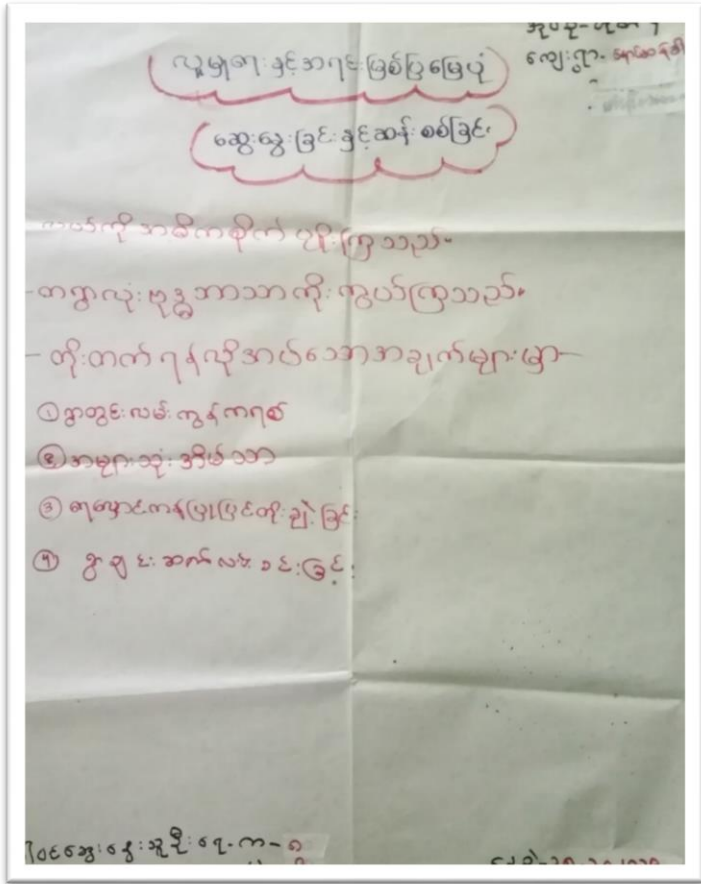 အုပ်စု-
ကျေးရွာ-
လူမှုရေးနှင့်အရင်းမြစ်ပြမြေပုံ
ဆွေးနွေးခြင်းနှင့်ဆန်းစစ်ခြင်း
ကို အဓိကစိုက်ပျိုးကြသည်။
-တရွာလုံးဗုဒ္ဓဘာသာကိုးကွယ်ကြသည်။
- တိုးတက်ရန်လိုအပ်သောအချက်များမှာ-
① ရွာတွင်းလမ်းကွန်ကရစ်
② အများသုံးအိမ်သာ
③ ရေလှောင်ကန်ပြုပြင်တိုးချဲ့ခြင်း
④ ရွာချင်းဆက်လမ်းခင်းခြင်း
ပါဝင်ဆွေးနွေးသူဦးရေ-ကာ-၅